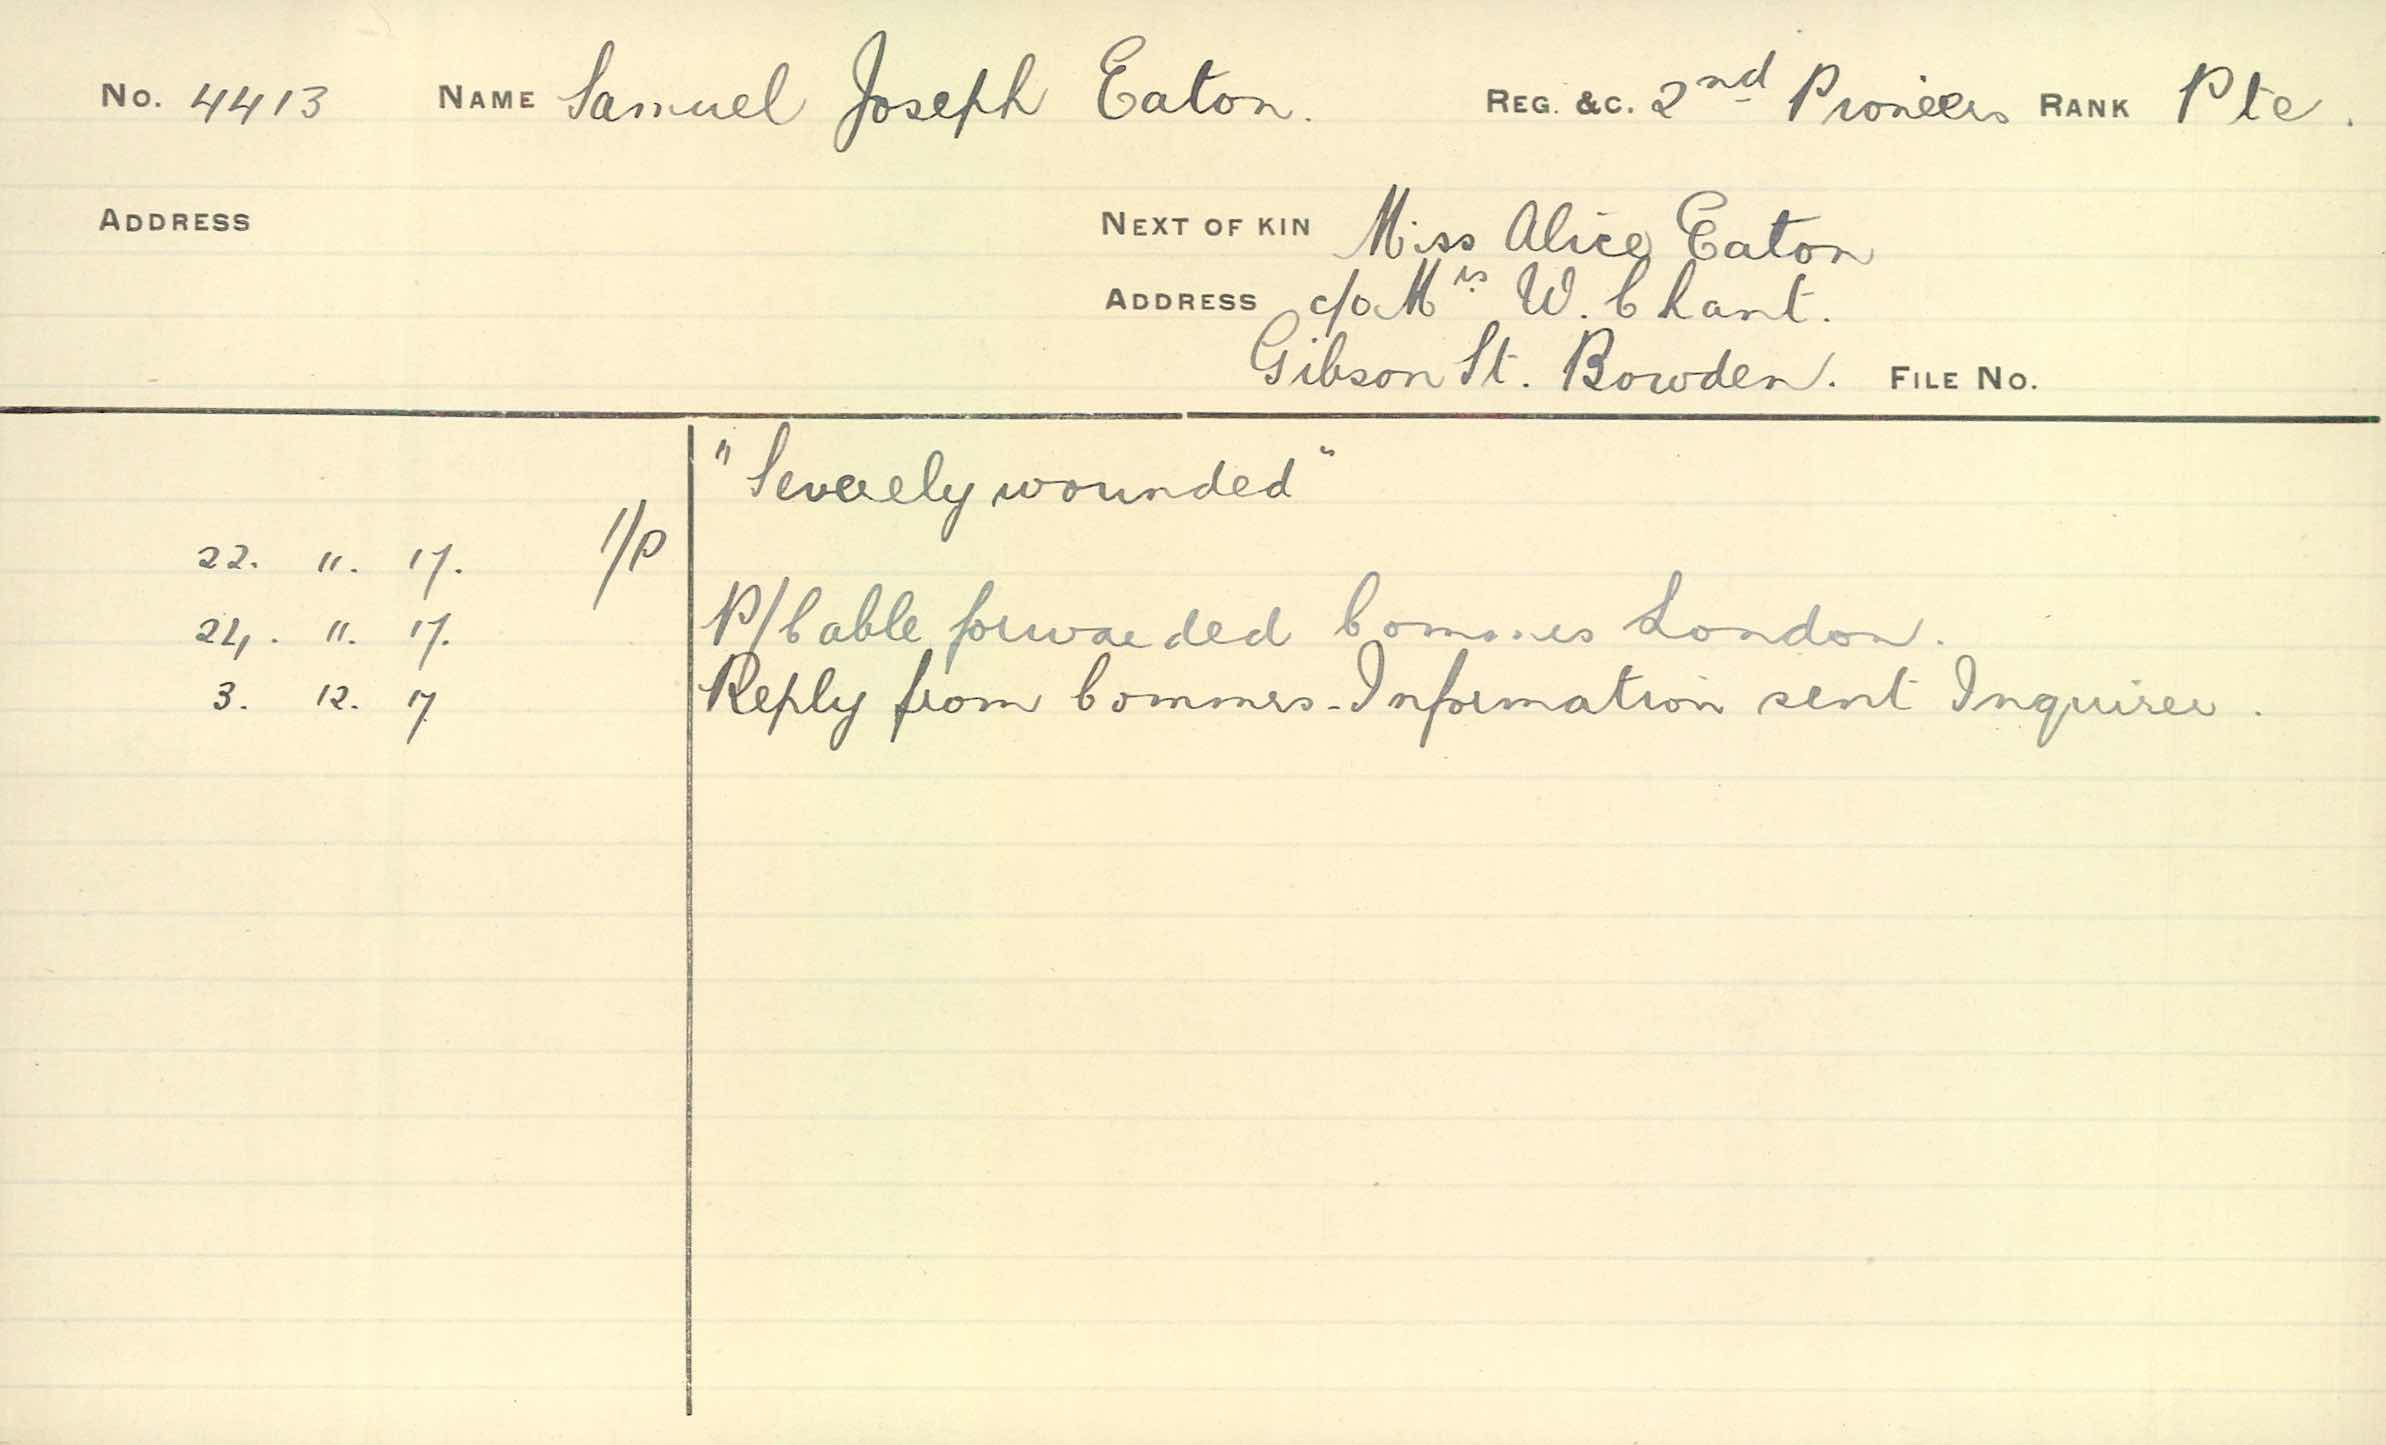 No. 4413 NAME Samuel Joseph Eaton. REG. &C. 2nd Pioneers RANK Pte.
ADDRESS NEXT OF KIN Miss Alice Eaton
ADDRESS c/o Mrs W. Chant.
Gibson St. Bowden. FILE No.
"Severely wounded"
22. 11. 17. 1/P
24. 11. 17. P/Cable forwarded Commrs London.
3. 12. 17 Reply from Commrs - Information sent Inquirer.